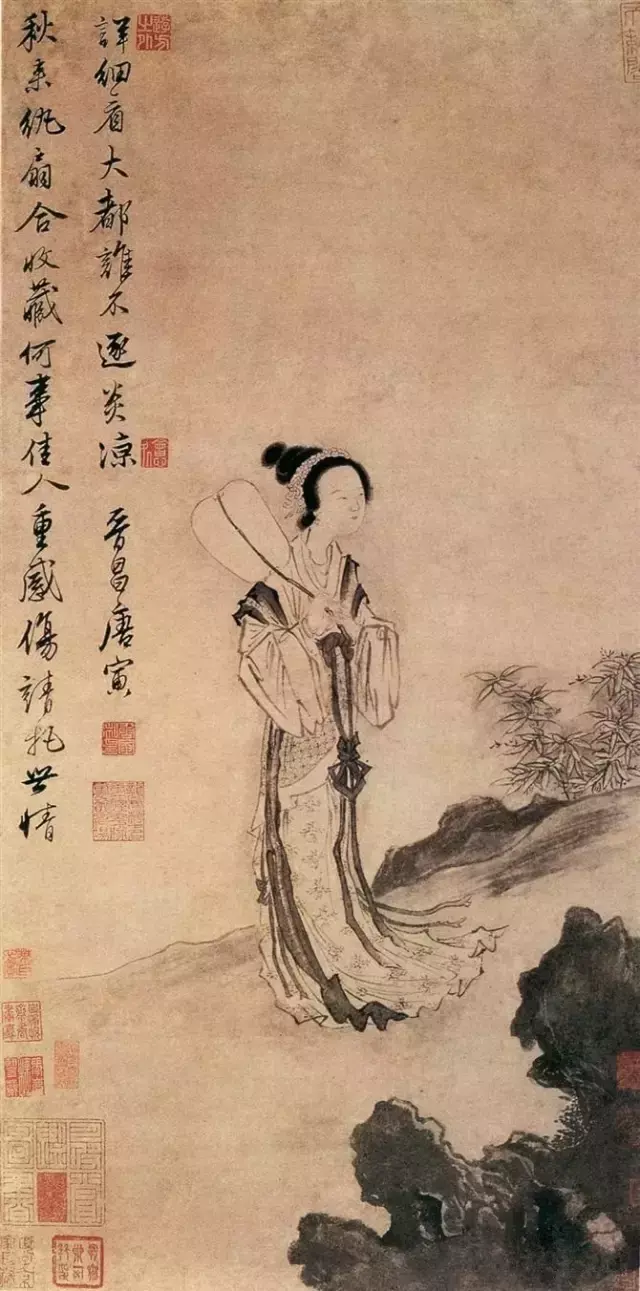 秋来紈扇合收藏何事佳人重感傷請托世情
詳細看大都誰不逐炎凉 晉昌唐寅